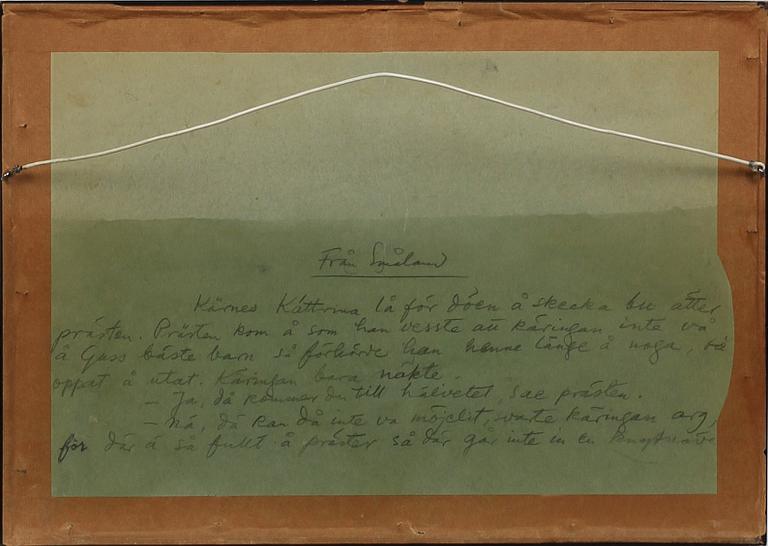 Från Småland
Kärnes Kattrina lå för döen å skecka bu åtter
prästen. Prästen kom å som han vesste att käringan inte va
å Guss bäste barn så förhörde han henne länge å noga,
oppat å utat. Käringan bara näkte.
– Ja, då kommer du till hälvetet, sae prästen.
– Nä, dä kan då inte va möjelit, svarte käringan arg,
för där ä så fullt å präster så där går inte in en